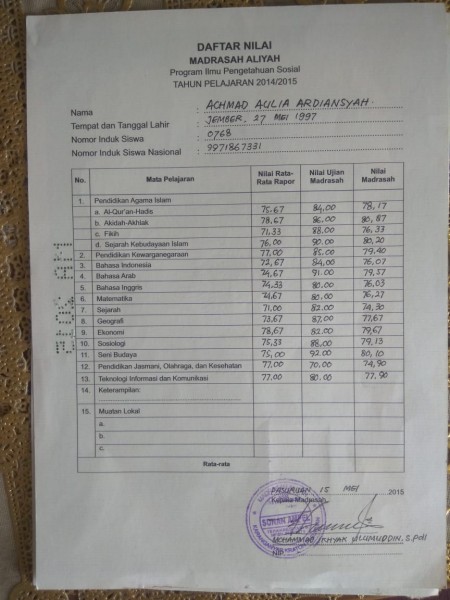 DAFTAR NILAI
MADRASAH ALIYAH
Program Ilmu Pengetahuan Sosial
TAHUN PELAJARAN 2014/2015
Nama : ACHMAD AULIA ARDIANSYAH
Tempat dan Tanggal Lahir : JEMBER, 27 MEI 1997
Nomor Induk Siswa : 0768
Nomor Induk Siswa Nasional : 9971867331
No. Mata Pelajaran Nilai Rata-Rata Rapor Nilai Ujian Madrasah Nilai Madrasah
1. Pendidikan Agama Islam
a. Al-Qur'an-Hadis 75,67 84,00 78,17
b. Akidah-Akhlak 78,67 86,00 80,87
c. Fikih 71,33 88,00 76,33
d. Sejarah Kebudayaan Islam 76,00 90,00 80,20
2. Pendidikan Kewarganegaraan 77,00 85,00 79,40
3. Bahasa Indonesia 72,67 84,00 76,07
4. Bahasa Arab 74,67 91.00 79,57
5. Bahasa Inggris 74,33 80.00 76,03
6. Matematika 74,67 80.00 76,27
7. Sejarah 71.00 82.00 74,30
8. Geografi 73,67 87.00 77,67
9. Ekonomi 78,67 82.00 79,67
10. Sosiologi 75,33 88,00 79,13
11. Seni Budaya 75,00 92.00 80,10
12. Pendidikan Jasmani, Olahraga, dan Kesehatan 77,00 70,00 74,90
13. Teknologi Informasi dan Komunikasi 77.00 80.00 77,90
14. Keterampilan:
15. Muatan Lokal
a.
b.
c.
Rata-rata
PASURUAN 15 MEI 2015
Kepala Madrasah
MOHAMMAD IKHYAK ULUMUDDIN, S.PdI
NIP